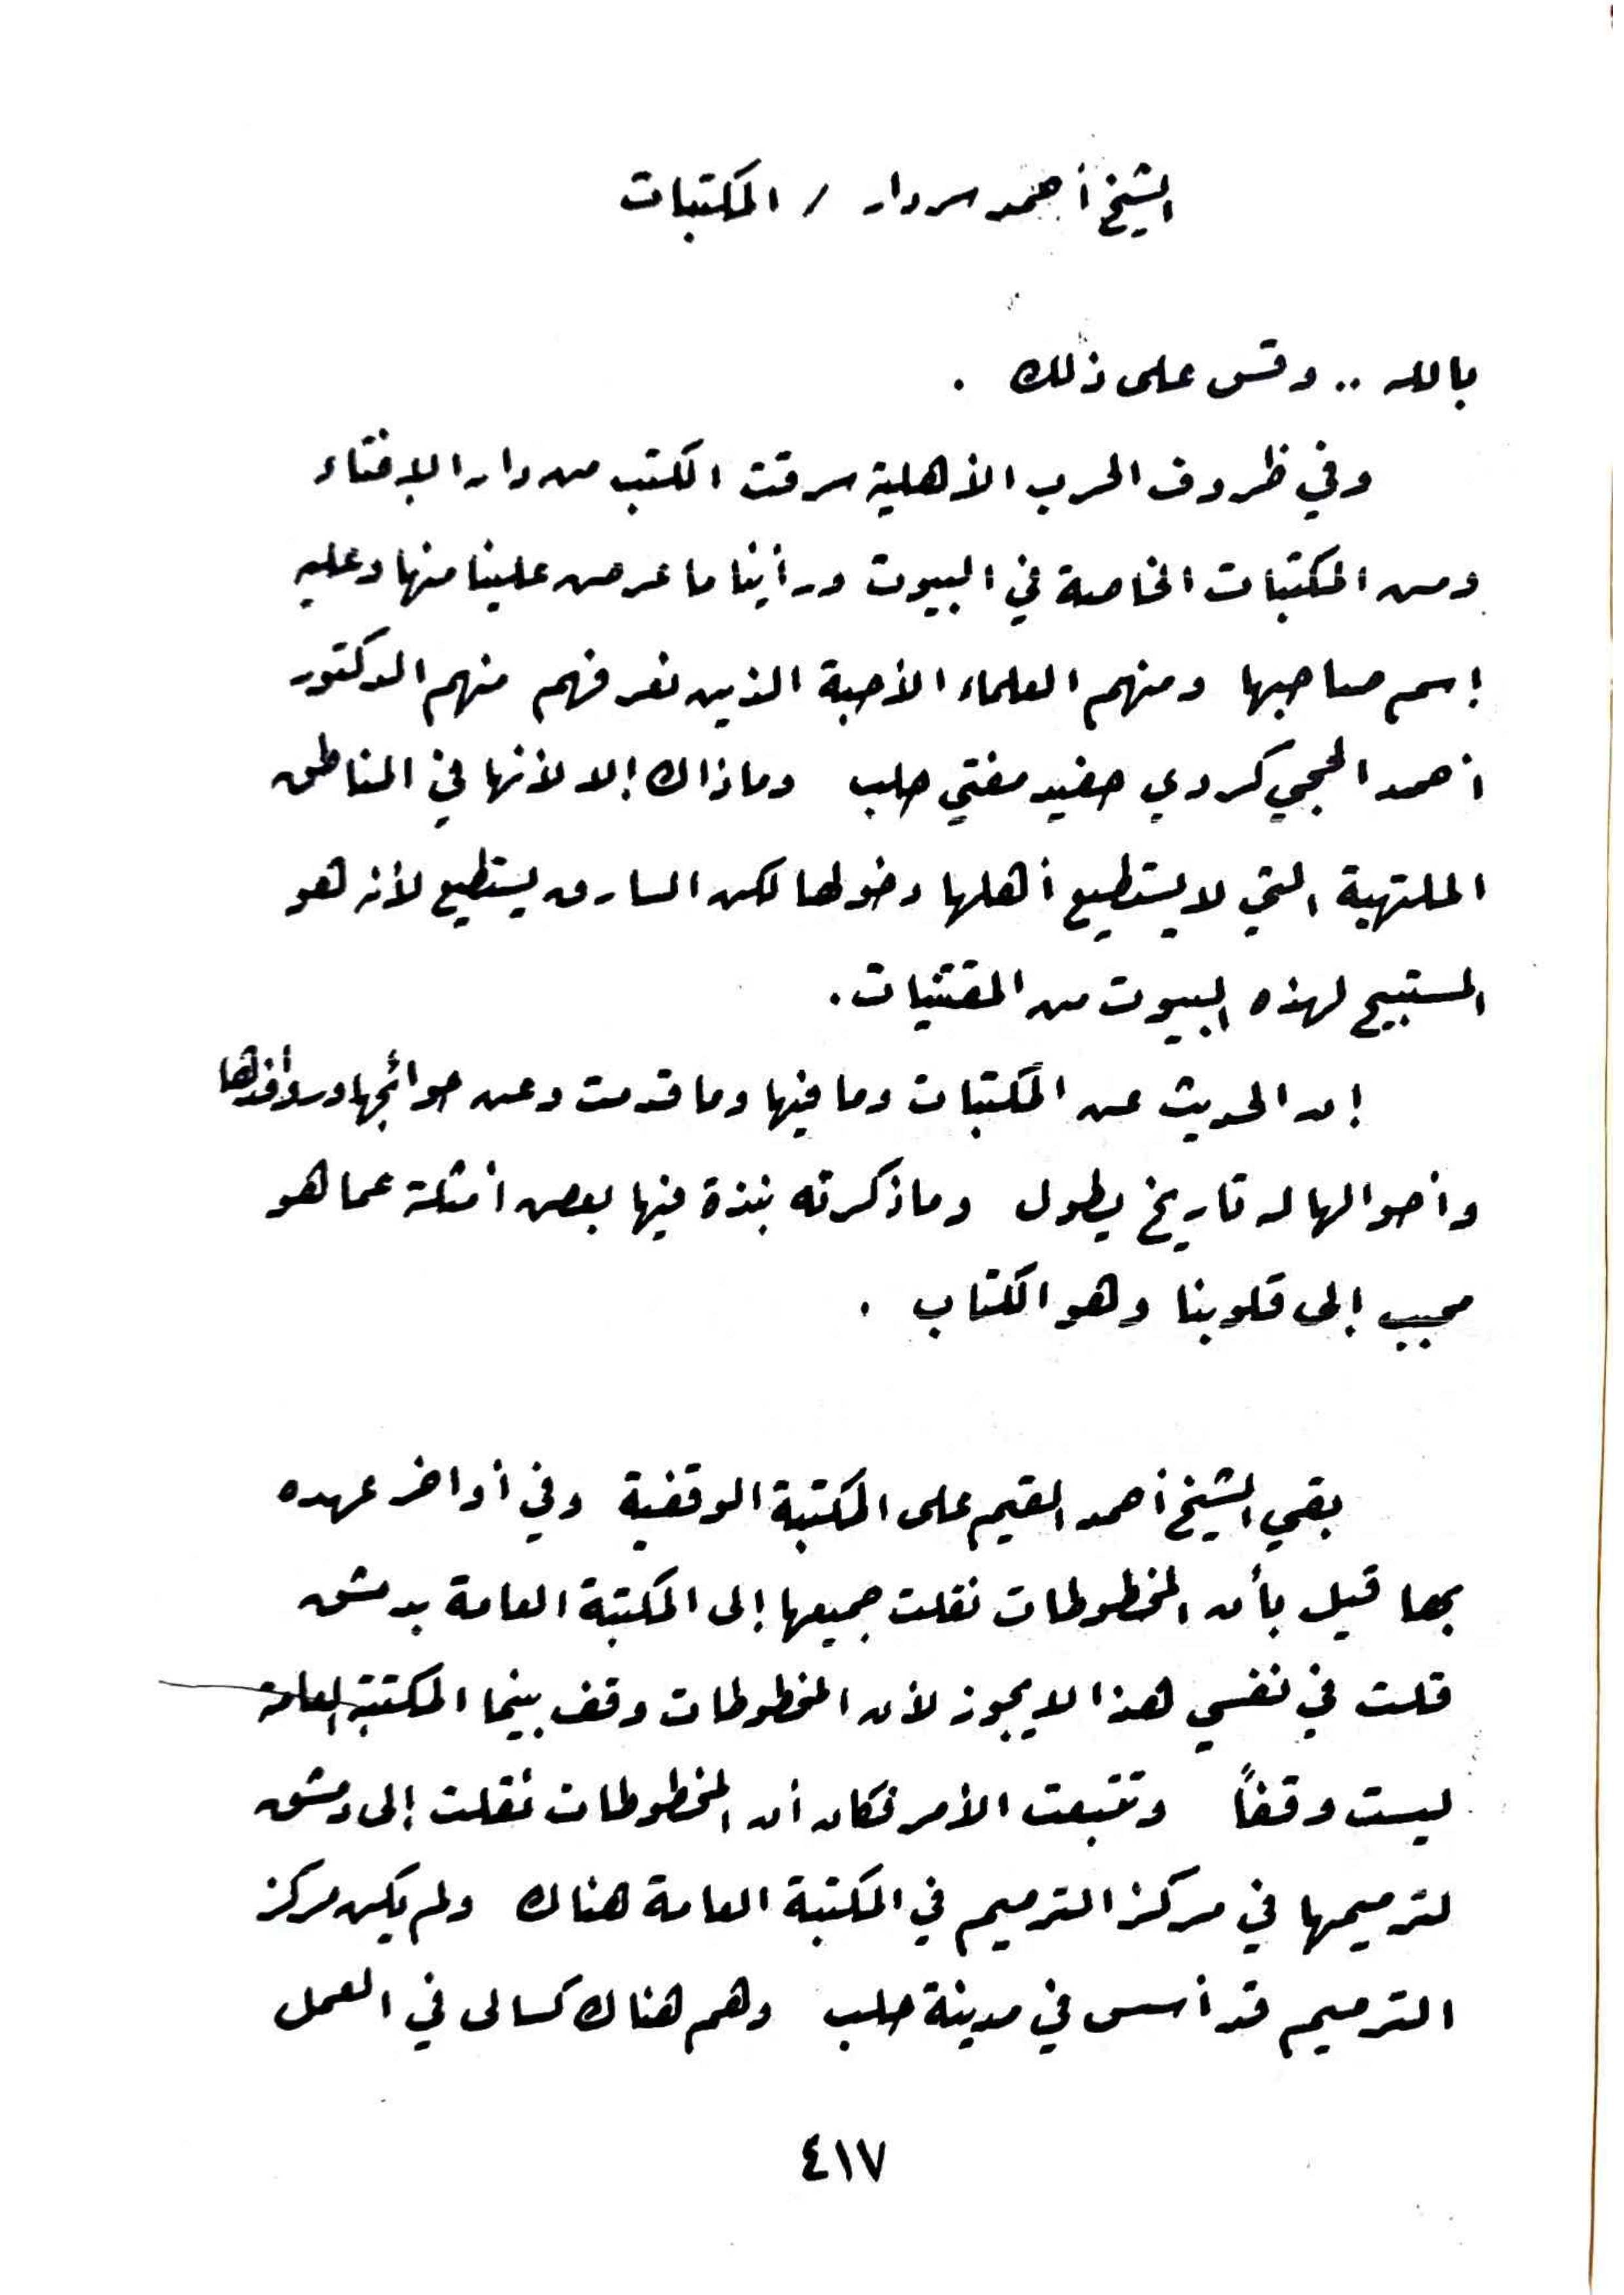 الشيخ أحمد سردار / المكتبات
بالله .. وقس على ذلك .
وفي ظروف الحرب الأهلية سرقت الكتب من دار الإفتاء
ومن المكتبات الخاصة في البيوت ورأينا ما عرض علينا منها وعليه
إسم صاحبها ومنهم العلماء الأحبة الذين نعرفهم منهم الدكتور
أحمد الحجي كردي حفيد مفتي حلب وماذاك إلا لأنها في المناطق
الملتهبة التي لا يستطيع أهلها دخولها لكن السارق يستطيع لأنه هو
المستبيح لهذه البيوت من المقتنيات .
إن الحديث عن المكتبات وما فيها وما قدمت وعن حوائجها
وأحوالها له تاريخ يطول وما ذكرته نبذة فيها بعض أمثلة عما هو
محبب إلى قلوبنا وهو الكتاب .
بقي الشيخ أحمد القيم على المكتبة الوقفية وفي أواخر عهده
بها قيل بأن المخطوطات نقلت جميعها إلى المكتبة العامة بدمشق
قلت في نفسي هذا لا يجوز لأن المخطوطات وقف بينما المكتبة العامة
ليست وقفاً وتتبعت الأمر فكان أن المخطوطات نقلت إلى دمشق
لترميمها في مركز الترميم في المكتبة العامة هناك ولم يكن مركز
الترميم قد أسس في مدينة حلب وهم هناك كسالى في العمل
٤١٧